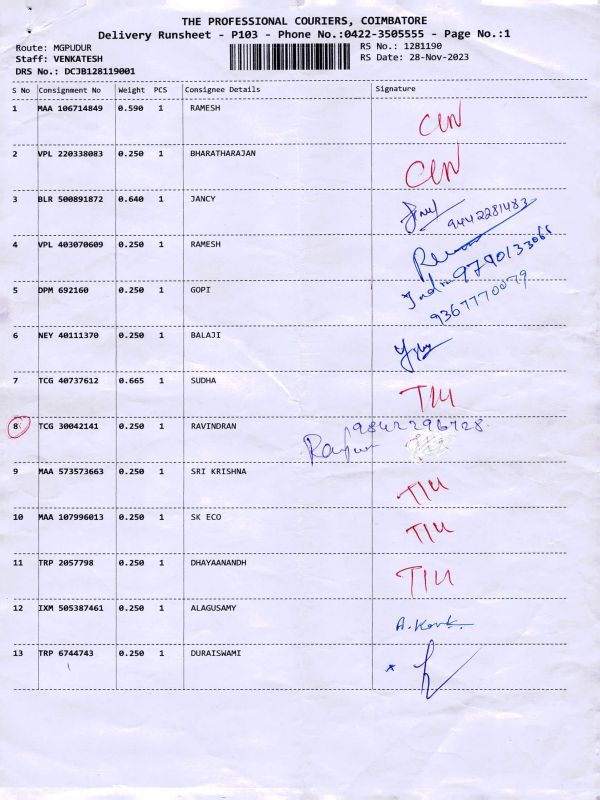 THE PROFESSIONAL COURIERS, COIMBATORE
Delivery Runsheet - P103 - Phone No.:0422-3505555 - Page No.:1
Route: MGPUDUR RS No.: 1281190
Staff: VENKATESH RS Date: 28-Nov-2023
DRS No.: DCJB128119001
S No Consignment No Weight PCS Consignee Details Signature
1 MAA 106714849 0.590 1 RAMESH
2 VPL 220338083 0.250 1 BHARATHARAJAN
3 BLR 500891872 0.640 1 JANCY 9442281483
4 VPL 403070609 0.250 1 RAMESH
9790133065
5 DPM 692160 0.250 1 GOPI 9367770079
6 NEY 40111370 0.250 1 BALAJI
7 TCG 40737612 0.665 1 SUDHA
8 TCG 30042141 0.250 1 RAVINDRAN 9842296728
9 MAA 573573663 0.250 1 SRI KRISHNA
10 MAA 107996013 0.250 1 SK ECO
11 TRP 2057798 0.250 1 DHAYAANANDH
12 IXM 505387461 0.250 1 ALAGUSAMY
13 TRP 6744743 0.250 1 DURAISWAMI